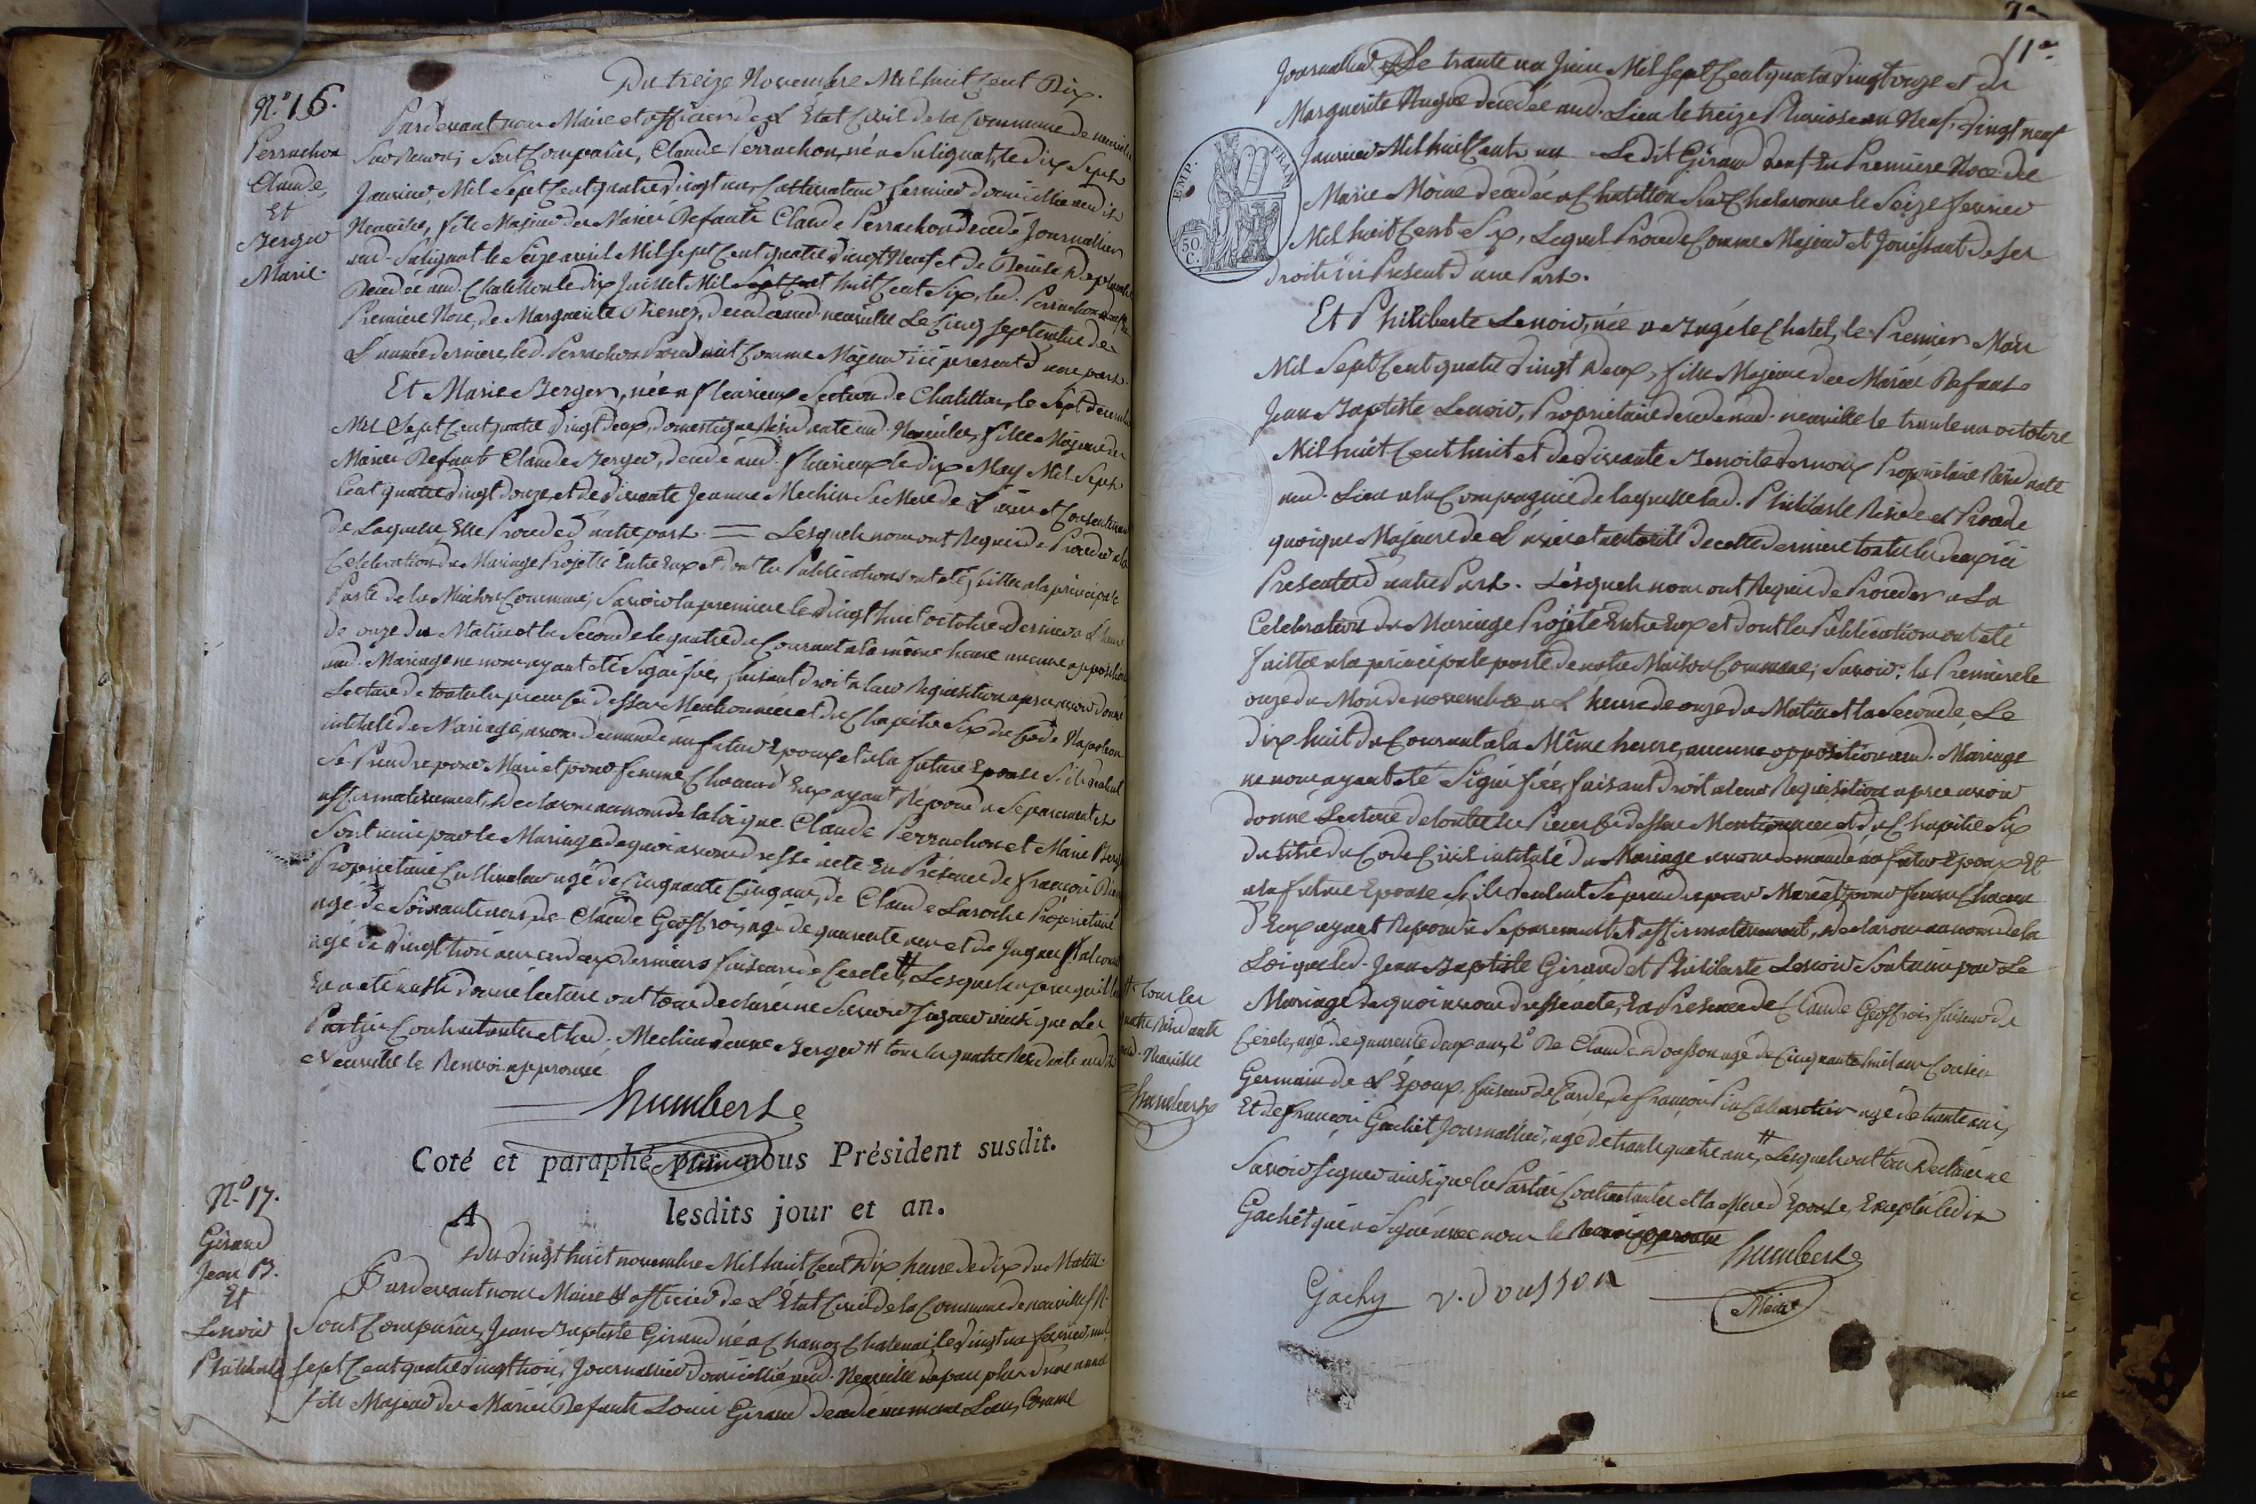 N.º 16.
Perrachon
Claude,
Et
Berger
Marie.
Du treize Novembre Mil huit Cent Dix.
Pardevant nous Maire et officier de L'État Civil de la Commune de neuville
Sur Renon; Sont Comparus, Claude Perrachon, né a Suligniat, le dix Sept
Janvier, Mil Sept Cent quatre vingt un, Cultivateur fermier domicilié audit
Neuville, fils Majeur des Mariés Defunts Claude Perrachon decedé Journallier
aud. Sulignat le Seize avril Mil Sept Cent quatre vingt Neuf et de Benite
Decedée aud. Chatillon le dix Juillet Mil Sept Cent huit Cent Six, led. Perrachon veuf en
Premiere Noce, de Marguerite decedée aud. neuville Le Cinq Septembre de
L'année derniere, led. Perrachon Procedant Comme Majeur ici present d'une part.
Et Marie Berger, née a fleurieux Section de Chatillon, le Sept decembre
Mil Sept Cent quatre vingt deux, domestique Residente aud. Neuville, fille Majeure des
Mariés Defunt Claude Berger, decedé aud. fleurieux le dix May Mil Sept
Cent quatre vingt douze, et de vivante Jeanne Mechin Sa Mere de L'avis et Consentement
de Laquelle Elle Procede d'autre part. = Lesquels nous ont Requis de Proceder a la
Celebration du Mariage Projetté Entre Eux et dont les Publications ont été faittes a la principale
Porte de la Maison Commune; Savoir la premiere le vingt huit octobre dernier a L'heure
de onze du Matin et la Seconde le quatre du Courant a la même heure aucune opposition
aud. Mariage ne nous ayant été Signifiée, faisant droit a leur Requisition apres avoir donné
Lecture de toutes les pieces Ci dessus Mentionnées et du Chapitre Six du Code Napoleon
intitulé du Mariage, avons demandé au futur Epoux et a la future Epouse S'ils veulent
Se Prendre pour Mari et pour femme Chacun d'Eux ayant Répondu Separement et
affirmativement, declarons au nom de la loi que Claude Perrachon et Marie Berger
Sont unis par le Mariage de quoi avons dressé acte En Présence de francois
Proprietaire Cultivateur agé de Cinquante Cinq ans, de Claude Laroche Proprietaire
agé de Soixante ans, de Claude Geoffroy agé de quarente ans et de Jaques
agé de vingt trois ans ces deux derniers faiseurs de Cercle, # Lesquels apres qu'il leur
En a été aussi donné lecture ont tous declaré ne Savoir Signer ainsi que Les
Parties Contractantes et lad. Mechin veuve Berger # tous les quatre Residents audit
Neuville le Renvoi approuvé
humbert
Maire
# tous les
quatre Residents
aud. Neuville
humbert
Coté et paraphé par nous Président susdit.
A lesdits jour et an.
N.º 17.
Girand
Jean B.
Et
Lenoir
Philiberte
Du vingt huit novembre Mil huit Cent Dix heure de dix du Matin.
Pardevant nous Maire et officier de L'État Civil de la Commune de neuville S. R.
Sont Comparus, Jean Baptiste Girand né a Chanoz Chatenai le vingt un fevrier, mil
Sept Cent quatre vingt trois, Journallier domicilié aud. Neuville depuis plus d'une année
fils Majeur des Mariés Defunts Louis Girand decedé au même Lieu, Comme
11e
Journallier Le trente un Juin Mil Sept Cent quatre vingt onze et de
Marguerite decedée aud. Lieu le treize Pluviose an Neuf, vingt neuf
EMP. FRAN.
50. C.
Janvier Mil huit Cent un Ledit Girand veuf En Premiere Noce de
Marie Moine decedée a Chatillon Sur Chalaronne le Seize fevrier
Mil huit Cent Six, Lequel Procede Comme Majeur et Jouissant de Ses
droits ici Present d'une Part.
Et Philiberte Lenoir, née a Bagé le Chatel, le Premier Mars
Mil Sept Cent quatre vingt deux, fille Majeure des Mariés Defunt
Jean Baptiste Lenoir, Proprietaire decedé aud. neuville le trente un octobre
Mil huit Cent huit et de vivante Benoite Proprietaire Residente
aud. Lieu a la Compagnie de laquelle lad. Philiberte Reside et Procede
quoique Majeure de L'avis et autorité de cette derniere toutes les deux ici
Presentes d'autre Part. Lesquels nous ont Requis de Proceder a La
Celebration du Mariage Projeté Entre Eux et dont les Publications ont été
faittes a la principale porte de notre Maison Commune; Savoir: la Premiere le
onze du Mois de novembre a L'heure de onze du Matin et la Seconde Le
dix huit du Courant a la Même heure, aucune opposition aud. Mariage
ne nous ayant été Signifiée, faisant droit a leur Requisition apres avoir
donné Lecture de toutes les Pieces Ci dessus Mentionnées et du Chapitre Six
du titre du Code Civil intitulé du Mariage avons demandé au futur Epoux Et
a la future Epouse S'ils veulent Se prendre pour Mari et pour femme Chacun
d'Eux ayant Repondu Separement et affirmativement, declarons au nom de la
Loi que led. Jean Baptiste Girand et Philiberte Lenoir Sont unis par Le
Mariage de quoi avons dressé acte, En Presence de Claude Geoffroi, faiseur de
Cercle, agé de quarente deux ans, 2º De Claude Dousson agé de Cinquante huit ans Cousin
Germain de L'Epoux faiseur de Cardes, de francois Pin Cabaretier agé de trente ans,
Et de francois Gachet Journallier, agé de trente quatre ans, # Lesquels ont tous declaré ne
Savoir signer ainsi que les Parties Contractantes et la Mere d'Epouse, Excepté ledit
Gachet qui a Signé avec nous le Renvoi approuvé
Gachy v. dousson
humbert
Maire